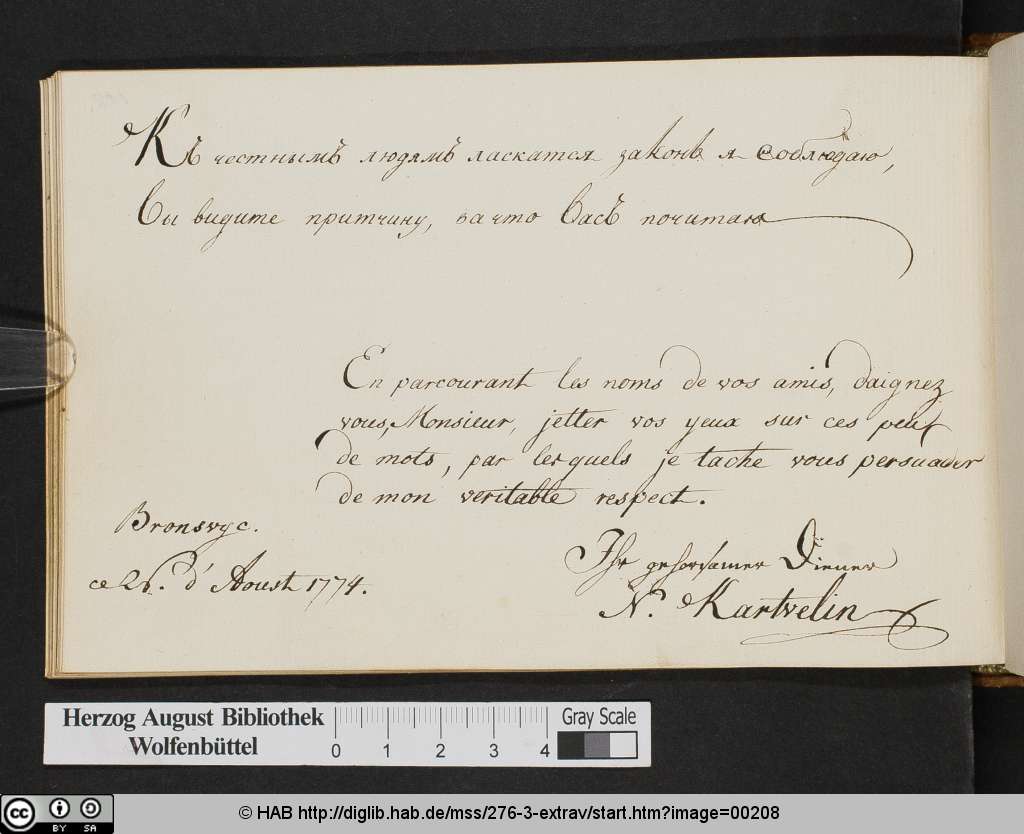 Къ честнымъ людямъ ласкатся законъ я соблюдаю,
Вы видите притчину, за что Васъ почитаю
En parcourant les noms de vos amis, daignez
vous, Monsieur, jetter vos yeux sur ces peu
de mots, par lesquels je tache vous persuader
de mon veritable respect.
Bronsvyc.
ce d' Aoust 1774.
Ihr gehorsamer Diener
N. Kartvelin
Herzog August Bibliothek
Wolfenbüttel
0 1 2 3 4
Gray Scale
cc BY SA
© HAB http://diglib.hab.de/mss/276-3-extrav/start.htm?image=00208